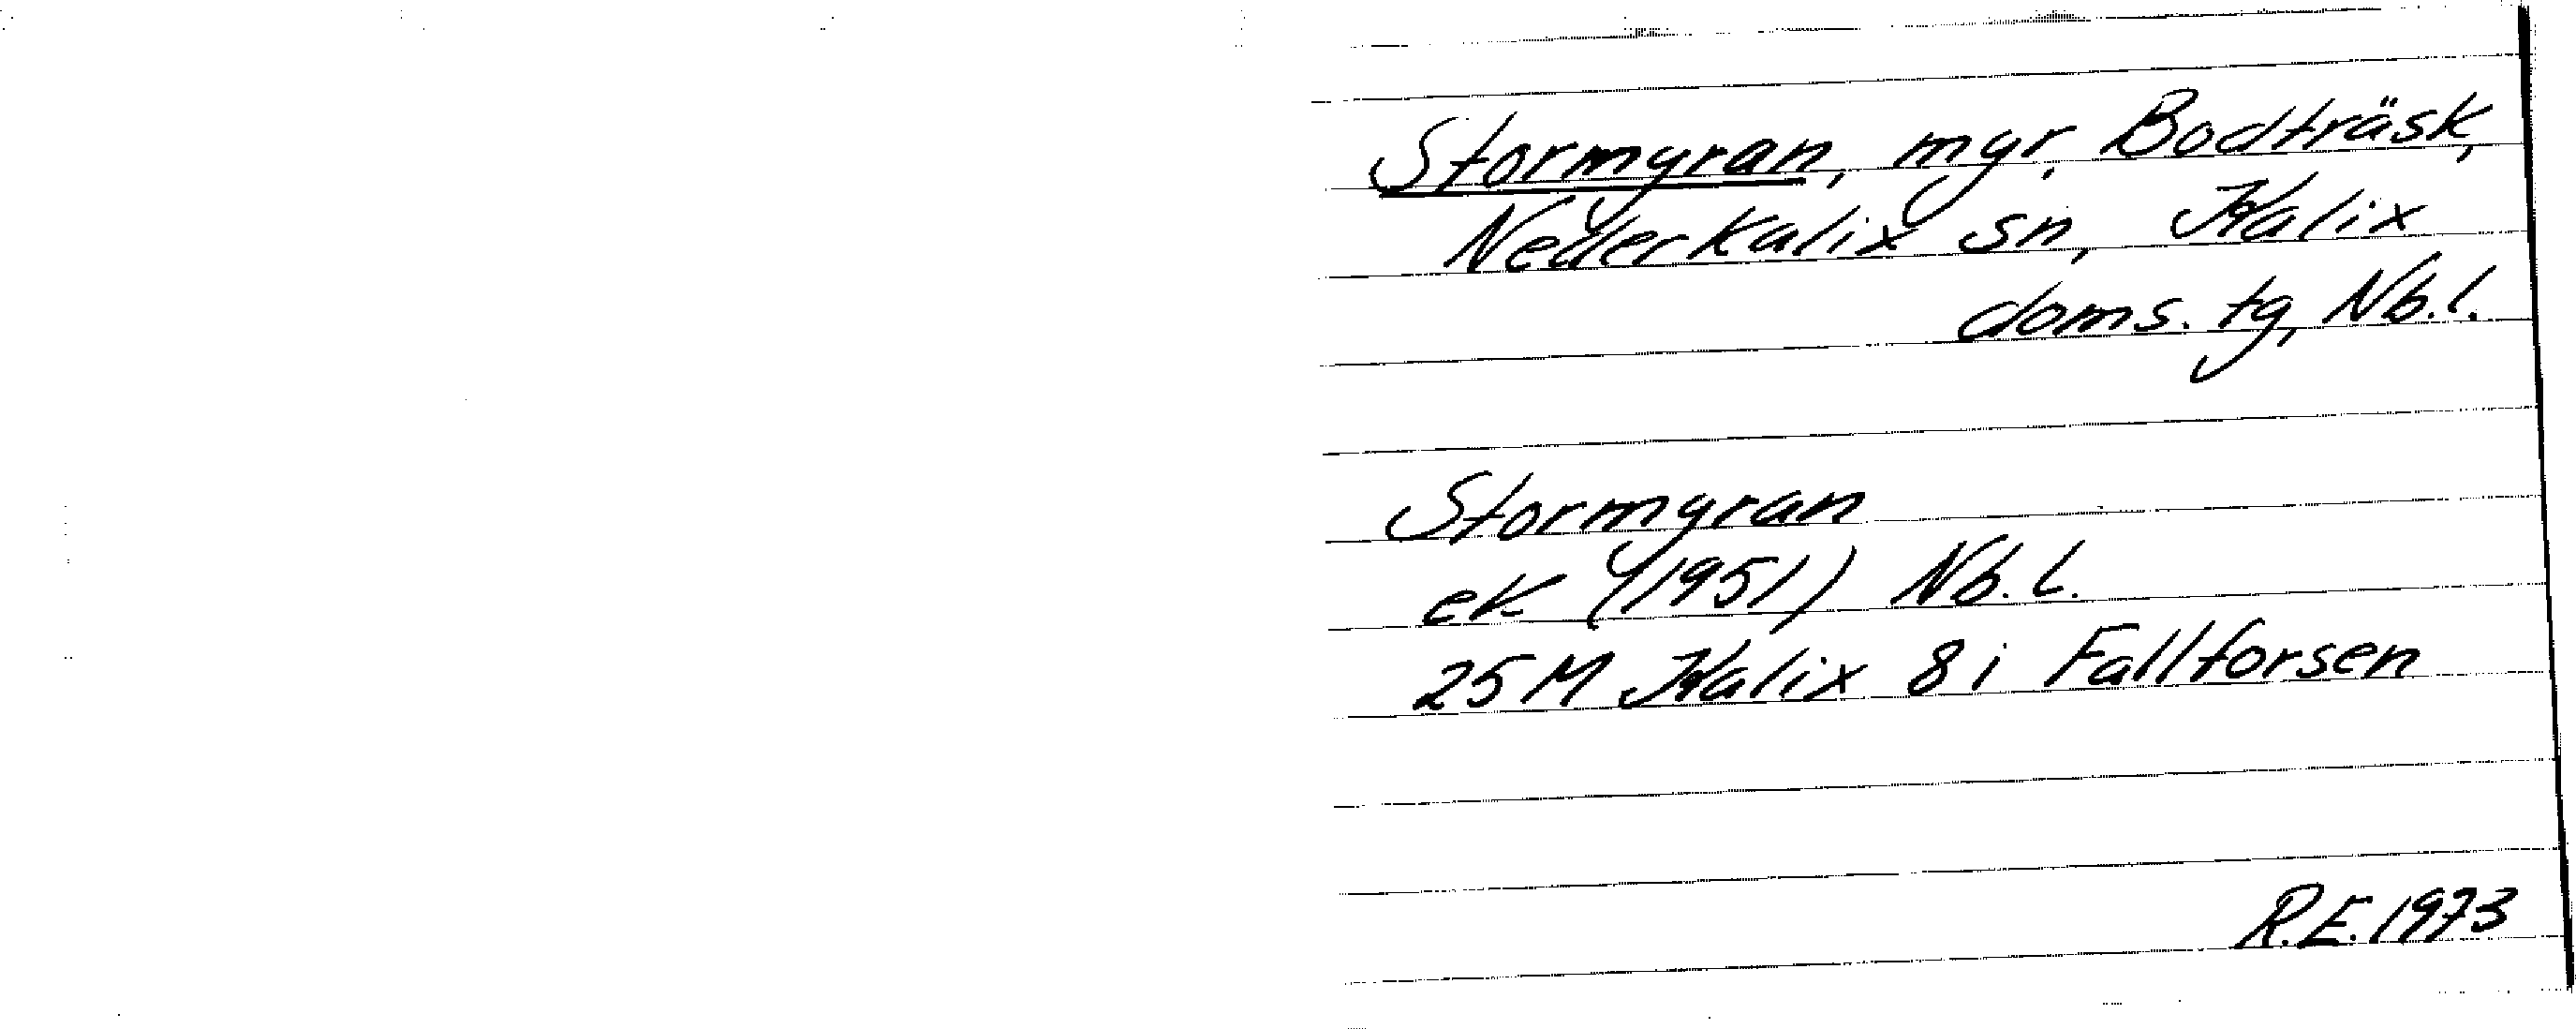 Stormyran, myr, Bodträsk,
Nederkalix sn, Kalix
doms. tg, Nb.l.
Stormyran
ek (1951) Nb.l.
25 M Kalix 8 i Fallforsen
R.E. 1973